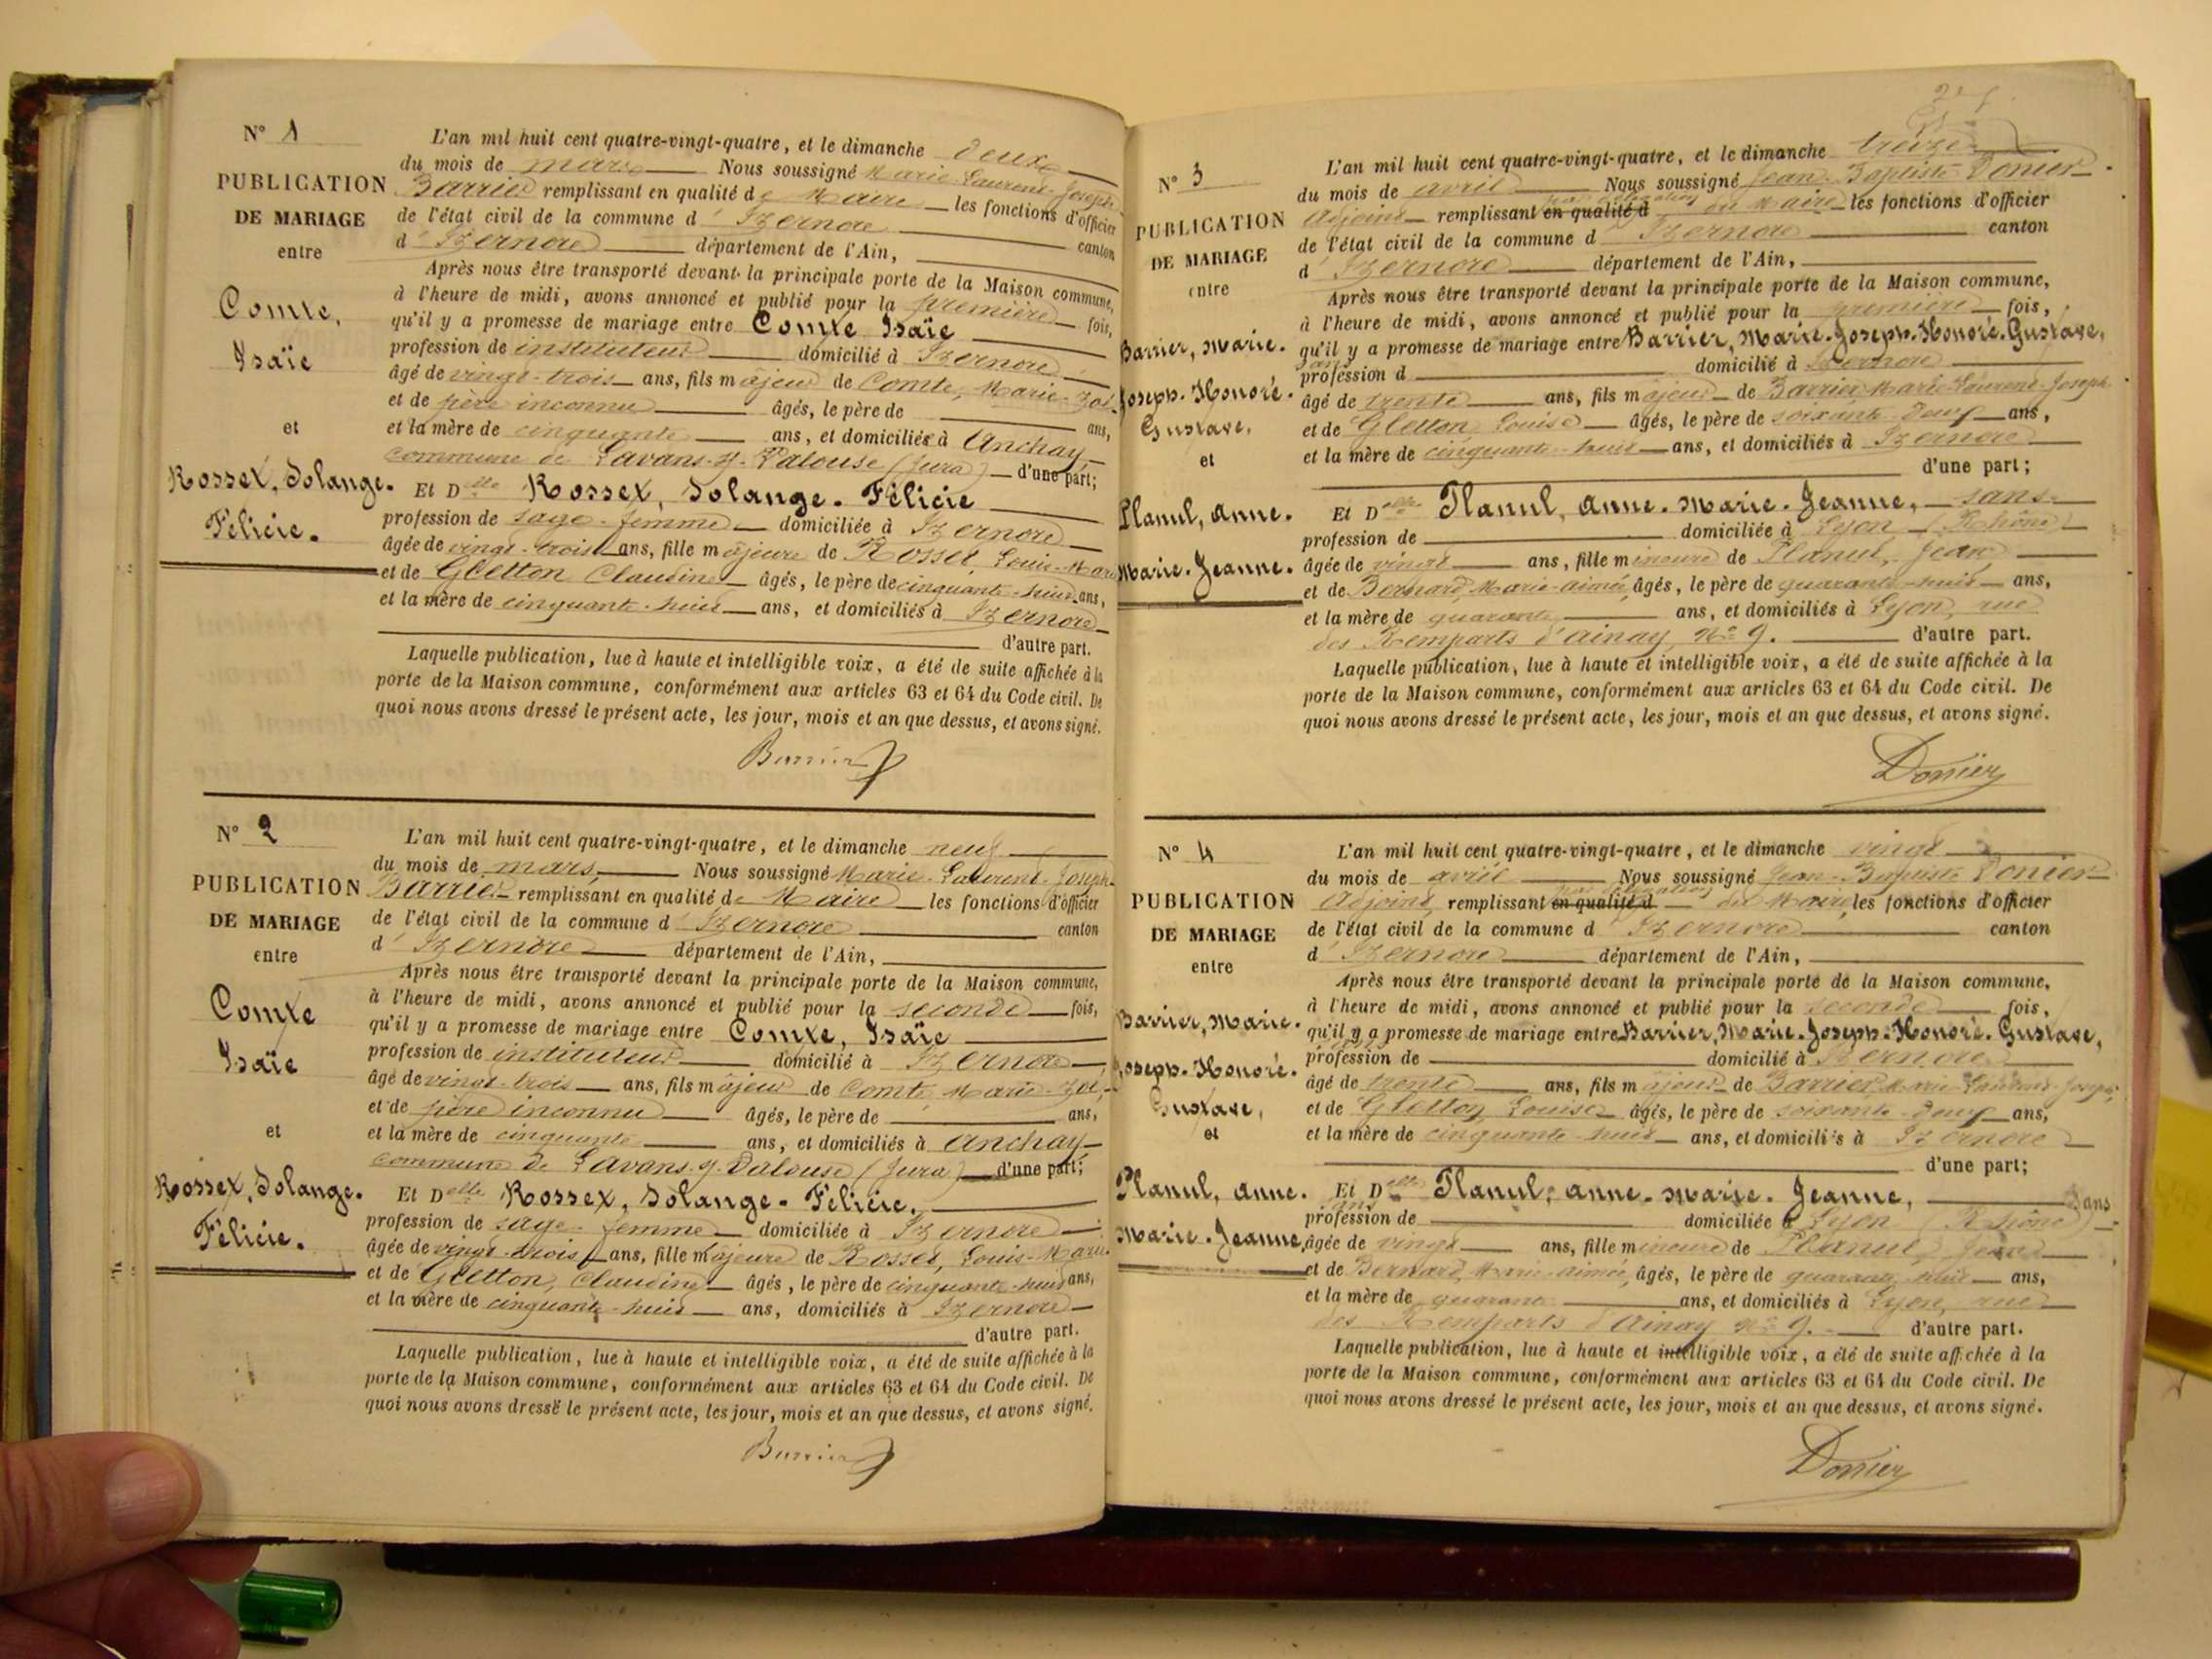 N° 1
PUBLICATION
DE MARIAGE
entre
Comte,
Isaïe
et
Rosset, Solange.
Félicie.
L'an mil huit cent quatre-vingt-quatre, et le dimanche deux
du mois de mars Nous soussigné Marie-Laurent-Joseph
Barrier remplissant en qualité de Maire les fonctions d'officier
de l'état civil de la commune d'Izernore canton
d'Izernore département de l'Ain,
Après nous être transporté devant la principale porte de la Maison commune,
à l'heure de midi, avons annoncé et publié pour la première fois,
qu'il y a promesse de mariage entre Comte Isaïe
profession de instituteur domicilié à Izernore
âgé de vingt-trois ans, fils majeur de Comte, Marie-Zoé
et de père inconnu âgés, le père de ans,
et la mère de cinquante ans, et domiciliés à Anchay
commune de Lavans-s-Valouse (Jura) d'une part;
Et Delle Rosset, Solange-Félicie
profession de sage-femme domiciliée à Izernore
âgée de vingt-trois ans, fille majeure de Rosset, Louis-Marie
et de Gletton Claudine âgés, le père de cinquante-huit ans,
et la mère de cinquante-huit ans, et domiciliés à Izernore
d'autre part.
Laquelle publication, lue à haute et intelligible voix, a été de suite affichée à la
porte de la Maison commune, conformément aux articles 63 et 64 du Code civil. De
quoi nous avons dressé le présent acte, les jour, mois et an que dessus, et avons signé.
Barrier
N° 2
PUBLICATION
DE MARIAGE
entre
Comte
Isaïe
et
Rosset, Solange.
Félicie.
L'an mil huit cent quatre-vingt-quatre, et le dimanche neuf
du mois de mars, Nous soussigné Marie-Laurent-Joseph
Barrier remplissant en qualité de Maire les fonctions d'officier
de l'état civil de la commune d'Izernore canton
d'Izernore département de l'Ain,
Après nous être transporté devant la principale porte de la Maison commune,
à l'heure de midi, avons annoncé et publié pour la seconde fois,
qu'il y a promesse de mariage entre Comte, Isaïe
profession de instituteur domicilié à Izernore
âgé de vingt-trois ans, fils majeur de Comte Marie-Zoé,
et de père inconnu âgés, le père de ans,
et la mère de cinquante ans, et domiciliés à Anchay
commune de Lavans-s-Valouse (Jura) d'une part;
Et Delle Rosset, Solange-Félicie.
profession de sage-femme domiciliée à Izernore
âgée de vingt-trois ans, fille majeure de Rosset, Louis-Marie
et de Gletton, Claudine âgés, le père de cinquante-huit ans,
et la mère de cinquante-huit ans, domiciliés à Izernore
d'autre part.
Laquelle publication, lue à haute et intelligible voix, a été de suite affichée à la
porte de la Maison commune, conformément aux articles 63 et 64 du Code civil. De
quoi nous avons dressé le présent acte, les jour, mois et an que dessus, et avons signé.
Barrier
N° 3
PUBLICATION
DE MARIAGE
entre
Barrier, Marie.
Joseph-Honoré.
Gustave.
et
Planul, Anne.
Marie-Jeanne.
L'an mil huit cent quatre-vingt-quatre, et le dimanche treize
du mois de avril Nous soussigné Jean-Baptiste Donier
Adjoint remplissant par délégation du Maire les fonctions d'officier
de l'état civil de la commune d'Izernore canton
d'Izernore département de l'Ain,
Après nous être transporté devant la principale porte de la Maison commune,
à l'heure de midi, avons annoncé et publié pour la première fois,
qu'il y a promesse de mariage entre Barrier, Marie-Joseph-Honoré-Gustave,
sans profession d domicilié à Izernore
âgé de trente ans, fils majeur de Barrier Marie-Laurent-Joseph
et de Gletton Louise âgés, le père de soixante-deux ans,
et la mère de cinquante-huit ans, et domiciliés à Izernore
d'une part;
Et Delle Planul, Anne-Marie-Jeanne, sans
profession de domiciliée à Lyon (Rhône)
âgée de vingt ans, fille mineure de Planul, Jean
et de Bernard, Marie-Aimée, âgés, le père de quarante-huit ans,
et la mère de quarante ans, et domiciliés à Lyon, rue
des Remparts d'Ainay, N° 9. d'autre part.
Laquelle publication, lue à haute et intelligible voix, a été de suite affichée à la
porte de la Maison commune, conformément aux articles 63 et 64 du Code civil. De
quoi nous avons dressé le présent acte, les jour, mois et an que dessus, et avons signé.
Donier
N° 4
PUBLICATION
DE MARIAGE
entre
Barrier, Marie.
Joseph-Honoré.
Gustave,
et
Planul, Anne.
Marie-Jeanne
L'an mil huit cent quatre-vingt-quatre, et le dimanche vingt
du mois de avril Nous soussigné Jean-Baptiste Donier
Adjoint remplissant par délégation du Maire les fonctions d'officier
de l'état civil de la commune d'Izernore canton
d'Izernore département de l'Ain,
Après nous être transporté devant la principale porte de la Maison commune,
à l'heure de midi, avons annoncé et publié pour la seconde fois,
qu'il y a promesse de mariage entre Barrier, Marie-Joseph-Honoré-Gustave,
sans profession de domicilié à Izernore
âgé de trente ans, fils majeur de Barrier, Marie-Laurent-Joseph,
et de Gletton Louise âgés, le père de soixante-deux ans,
et la mère de cinquante-huit ans, et domiciliés à Izernore
d'une part;
Et Delle Planul, Anne-Marie-Jeanne, sans
profession de domiciliée à Lyon (Rhône)
âgée de vingt ans, fille mineure de Planul, Jean
et de Bernard, Marie-Aimée, âgés, le père de quarante-huit ans,
et la mère de quarante ans, et domiciliés à Lyon, rue
des Remparts d'Ainay N° 9. d'autre part.
Laquelle publication, lue à haute et intelligible voix, a été de suite affichée à la
porte de la Maison commune, conformément aux articles 63 et 64 du Code civil. De
quoi nous avons dressé le présent acte, les jour, mois et an que dessus, et avons signé.
Donier